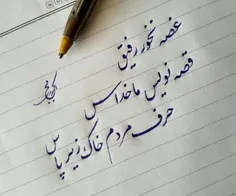 غصه نخور رفیق
قصه نویس ما خداس
حرف مردم خاک زیر پاس